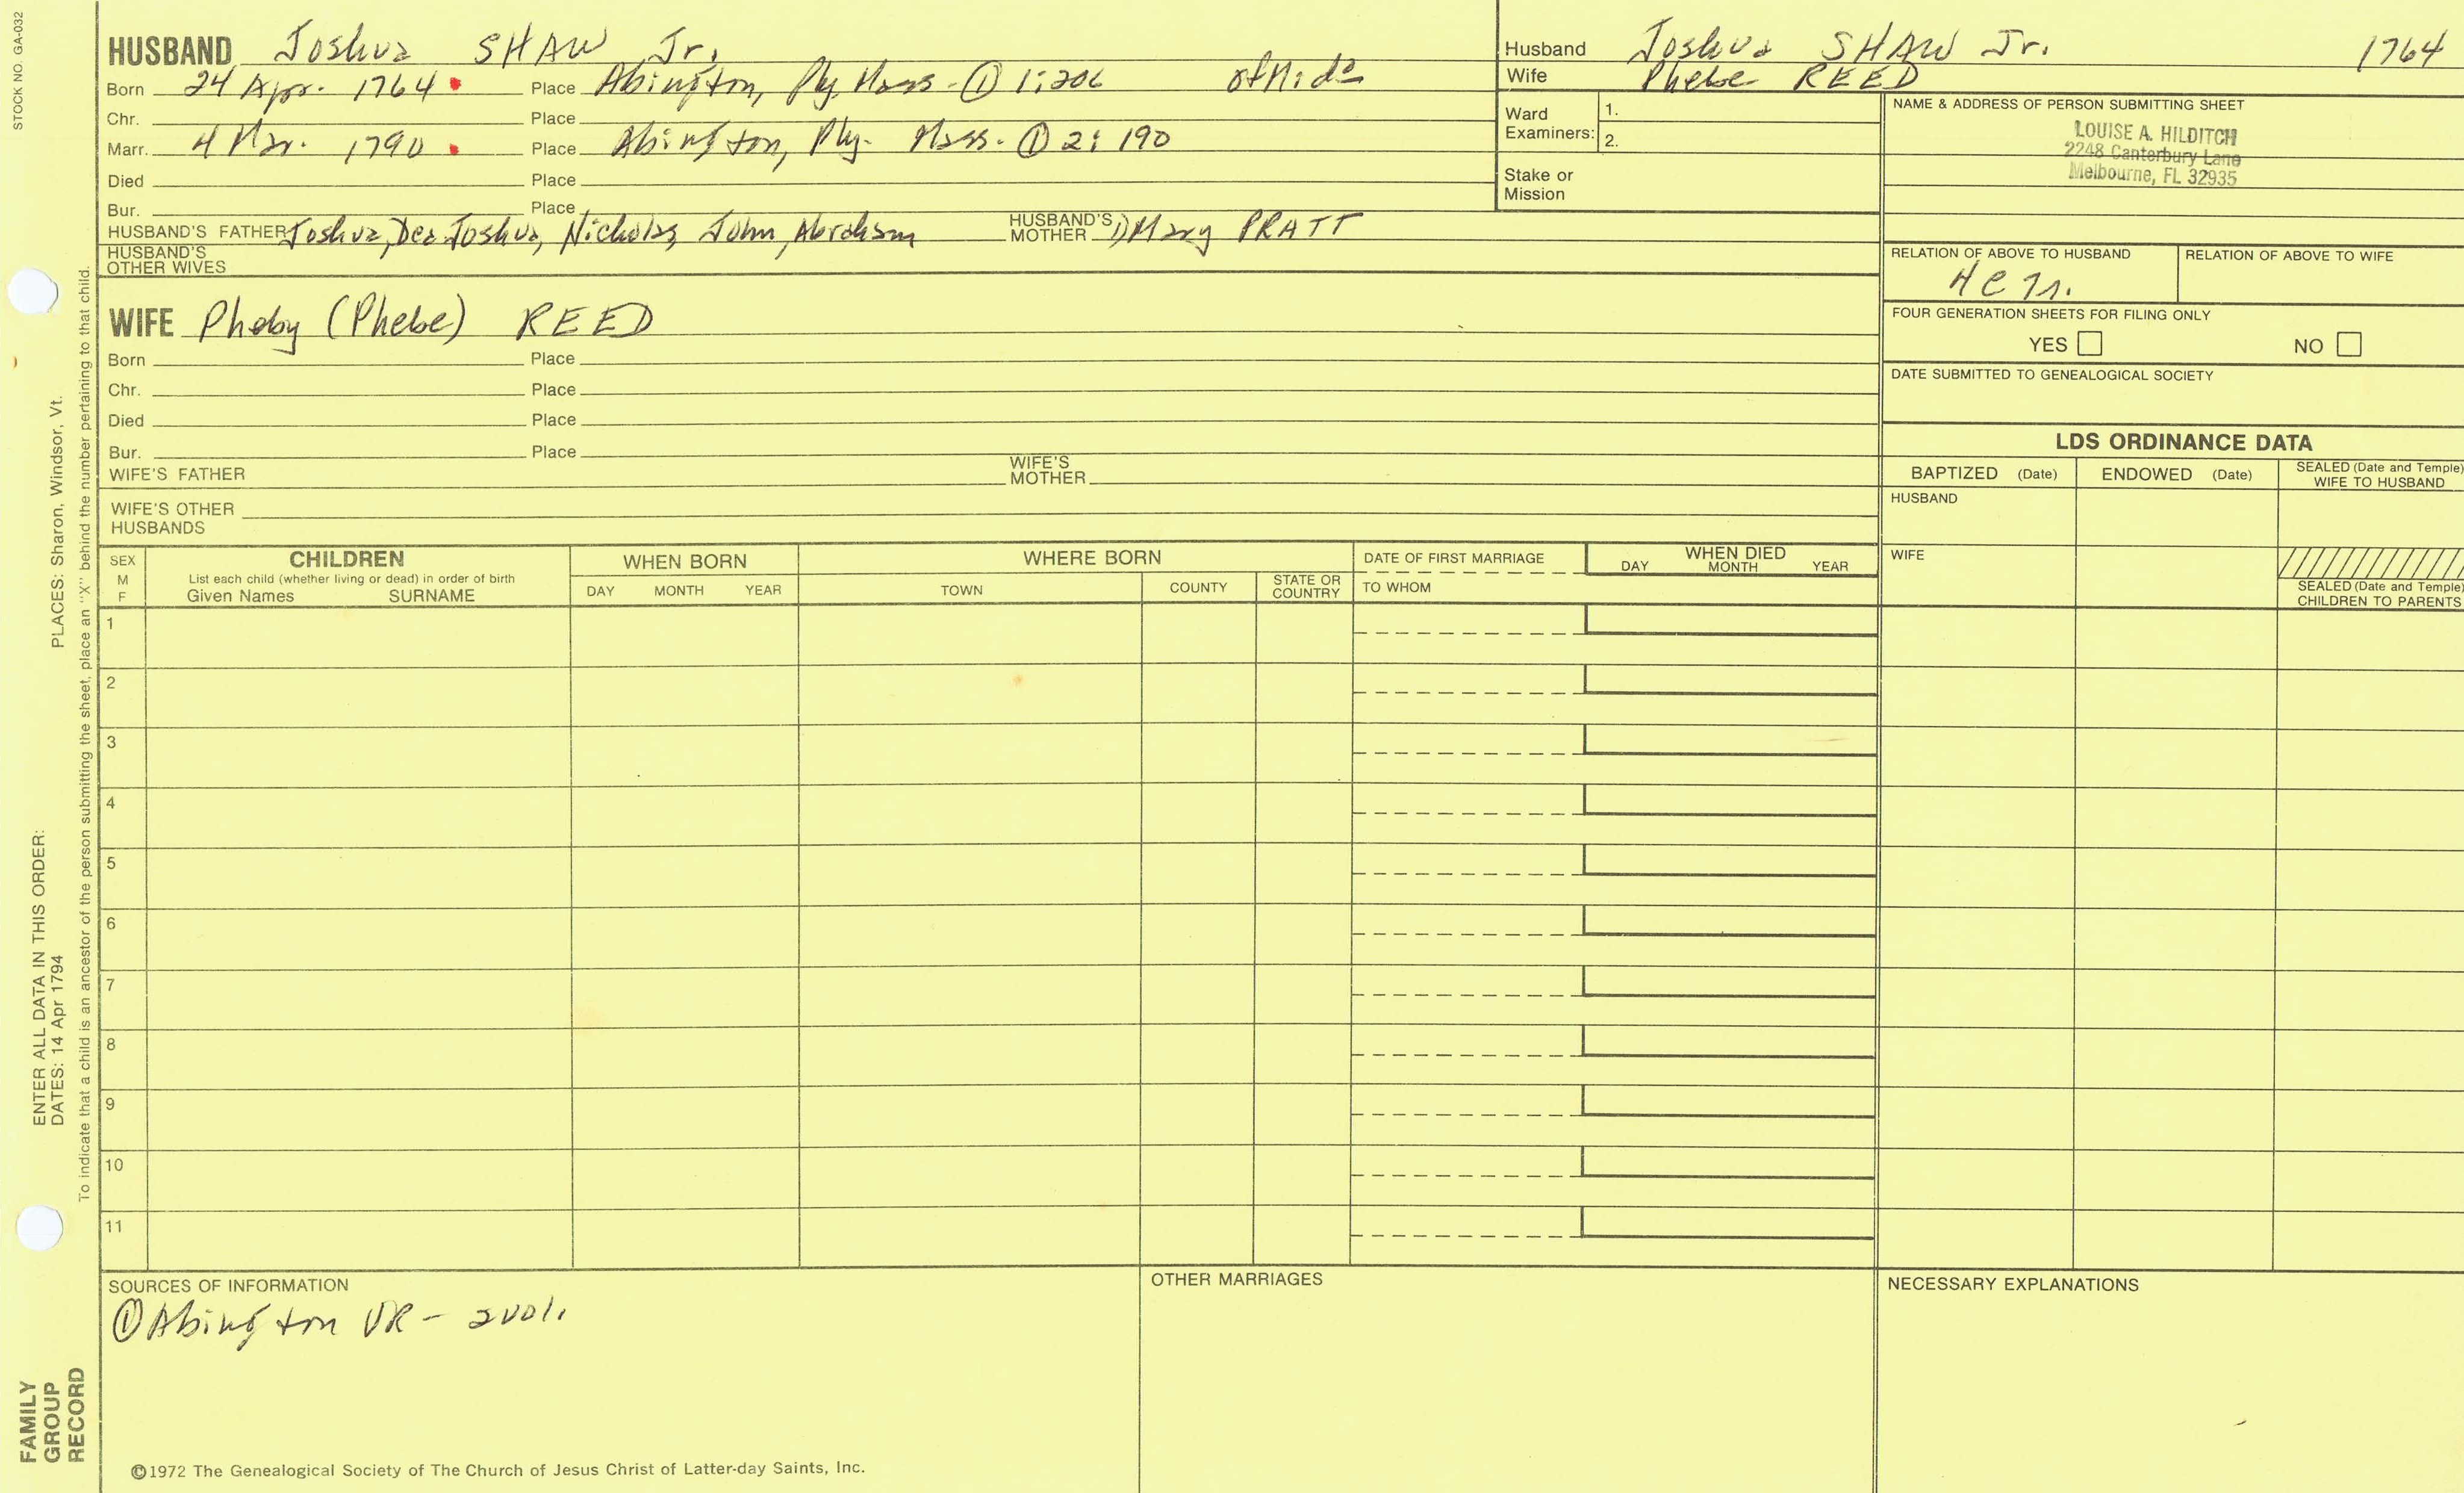 STOCK NO. GA-032
HUSBAND Joshua SHAW Jr.
Born 24 Apr. 1764 Place Abington, Ply. Mass. ① 1:206
Chr. Place
Marr. 4 Mar. 1790 Place Abington, Ply. Mass. ① 2:190
Died Place
Bur. Place
HUSBAND'S FATHER Joshua, Dea. Joshua, Nicholas, John, Abraham HUSBAND'S MOTHER 1) Mary PRATT
HUSBAND'S OTHER WIVES
WIFE Pheby (Phebe) REED
Born Place
Chr. Place
Died Place
Bur. Place
WIFE'S FATHER WIFE'S MOTHER
WIFE'S OTHER HUSBANDS
Husband Joshua SHAW Jr. 1764
Wife Phebe REED
Ward Examiners: 1.
2.
Stake or Mission
NAME & ADDRESS OF PERSON SUBMITTING SHEET
LOUISE A. HILDITCH
2248 Canterbury Lane
Melbourne, FL 32935
RELATION OF ABOVE TO HUSBAND RELATION OF ABOVE TO WIFE
FOUR GENERATION SHEETS FOR FILING ONLY
YES NO
DATE SUBMITTED TO GENEALOGICAL SOCIETY
LDS ORDINANCE DATA
BAPTIZED (Date) ENDOWED (Date) SEALED (Date and Temple) WIFE TO HUSBAND
HUSBAND
WIFE
SEALED (Date and Temple) CHILDREN TO PARENTS
SEX M F
CHILDREN
List each child (whether living or dead) in order of birth
Given Names SURNAME
WHEN BORN
DAY MONTH YEAR
WHERE BORN
TOWN COUNTY STATE OR COUNTRY
DATE OF FIRST MARRIAGE
TO WHOM
WHEN DIED
DAY MONTH YEAR
1
2
3
4
5
6
7
8
9
10
11
SOURCES OF INFORMATION
① Abington VR - 2 vol.
OTHER MARRIAGES
NECESSARY EXPLANATIONS
©1972 The Genealogical Society of The Church of Jesus Christ of Latter-day Saints, Inc.
FAMILY GROUP RECORD
ENTER ALL DATA IN THIS ORDER:
DATES: 14 Apr 1794 PLACES: Sharon, Windsor, Vt.
To indicate that a child is an ancestor of the person submitting the sheet, place an "X" behind the number pertaining to that child.